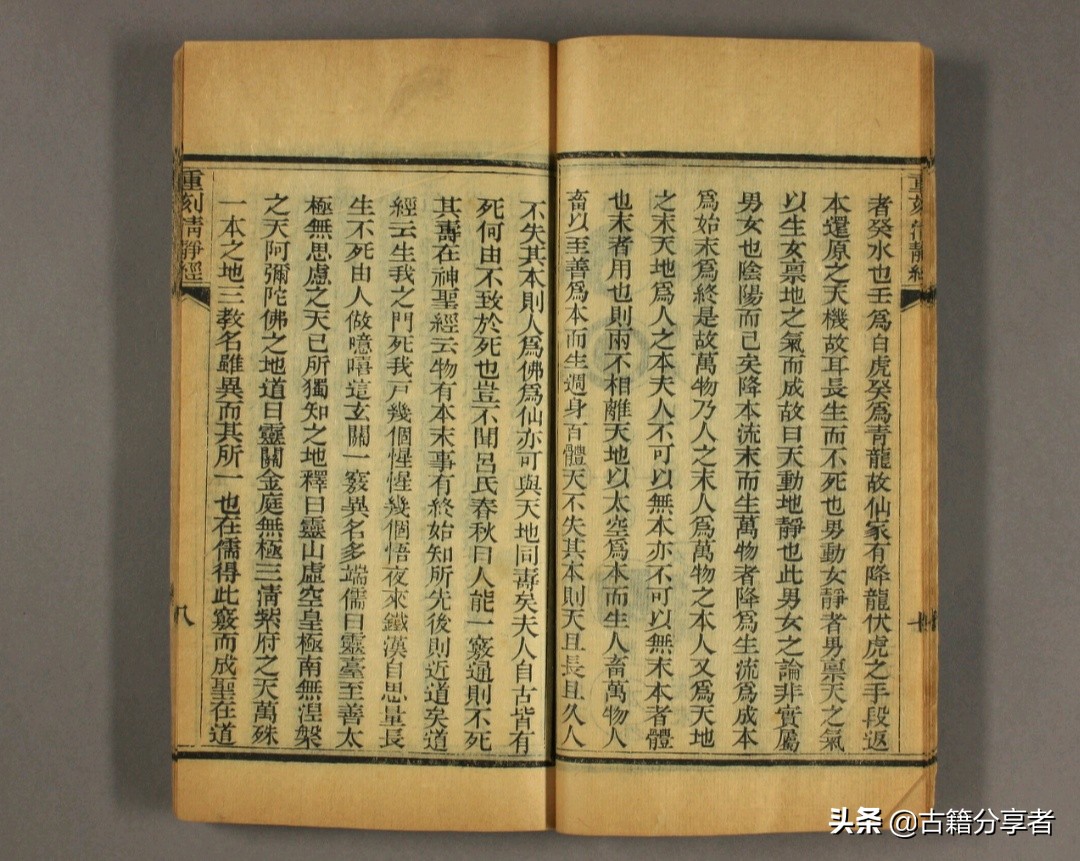 者癸水也壬爲白虎癸爲青龍故仙家有降龍伏虎之手段返
本還原之天機故耳長生而不死也男動女靜者男禀天之氣
以生女禀地之氣而成故曰天動地靜也此男女之論非實屬
男女也陰陽而已矣降本流末而生萬物者降爲生流爲成本
爲始末爲終是故萬物乃人之末人爲萬物之本人又爲天地
之末天地爲人之本夫人不可以無本亦不可以無末本者體
也末者用也則兩不相離天地以太空爲本而生人畜萬物人
畜以至善爲本而生週身百體天不失其本則天且長且久人
不失其本則人爲佛爲仙亦可與天地同壽矣夫人自古皆有
死何由不致於死也豈不聞呂氏春秋曰人能一竅通則不死
其壽在神聖經云物有本末事有終始知所先後則近道矣道
經云生我之門死我戸幾個惺惺幾個悟夜來鐵漢自思量長
生不死由人做噫嘻這玄關一竅異名多端儒曰靈臺至善太
極無思慮之天已所獨知之地釋曰靈山虛空皇極南無涅槃
之天阿彌陀佛之地道曰靈關金庭無極三清紫府之天萬殊
一本之地三教名雖異而其所一也在儒得此竅而成聖在道
重刻清靜經
八
重刻清靜經
头条 @古籍分享者